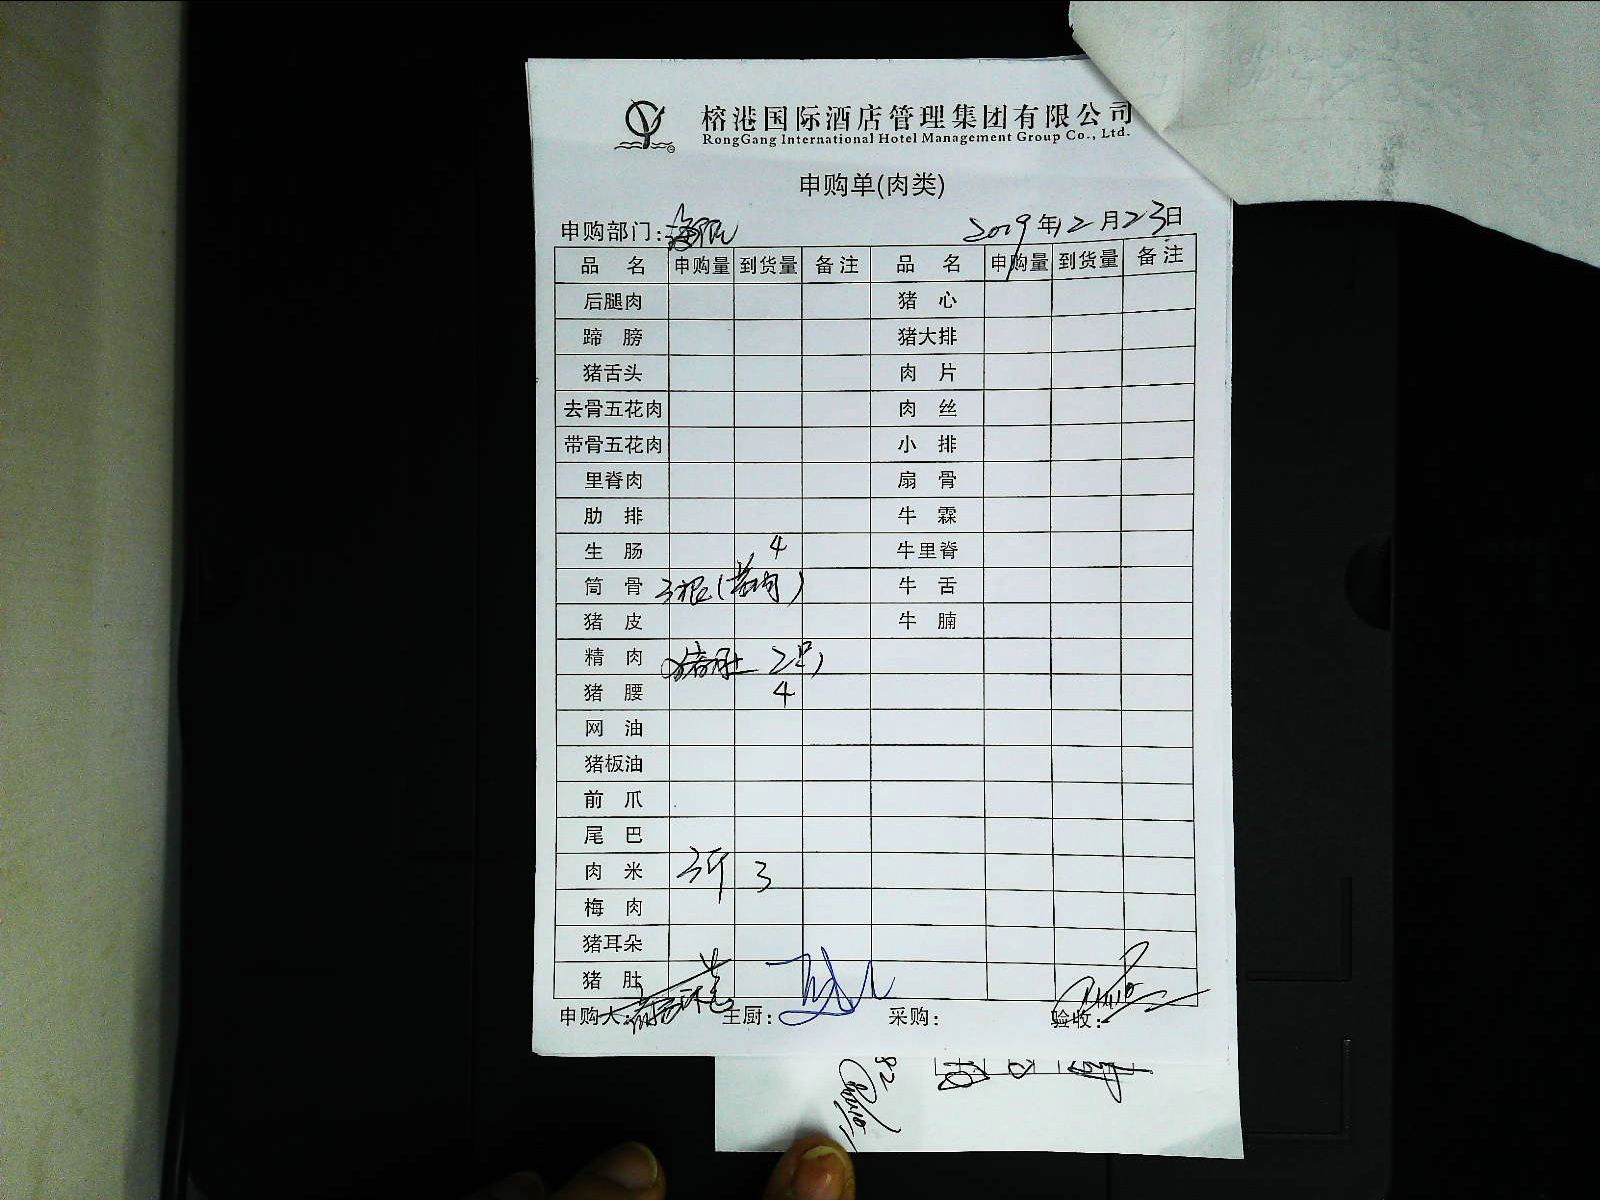 榕港国际酒店管理集团有限公司
RongGang International Hotel Management Group Co., Ltd.
申购单(肉类)
申购部门: 2019年12月23日
品 名 申购量 到货量 备注 品 名 申购量 到货量 备注
后腿肉 猪 心
蹄 膀 猪大排
猪舌头 肉 片
去骨五花肉 肉 丝
带骨五花肉 小 排
里脊肉 扇 骨
肋 排 牛 霖
生 肠 4 牛里脊
筒 骨 3根( 肉) 牛 舌
猪 皮 牛 腩
精 肉 猪肚 2只)
猪 腰 4
网 油
猪板油
前 爪
尾 巴
肉 米 3斤 3
梅 肉
猪耳朵
猪 肚
申购人: 主厨: 采购: 验收: